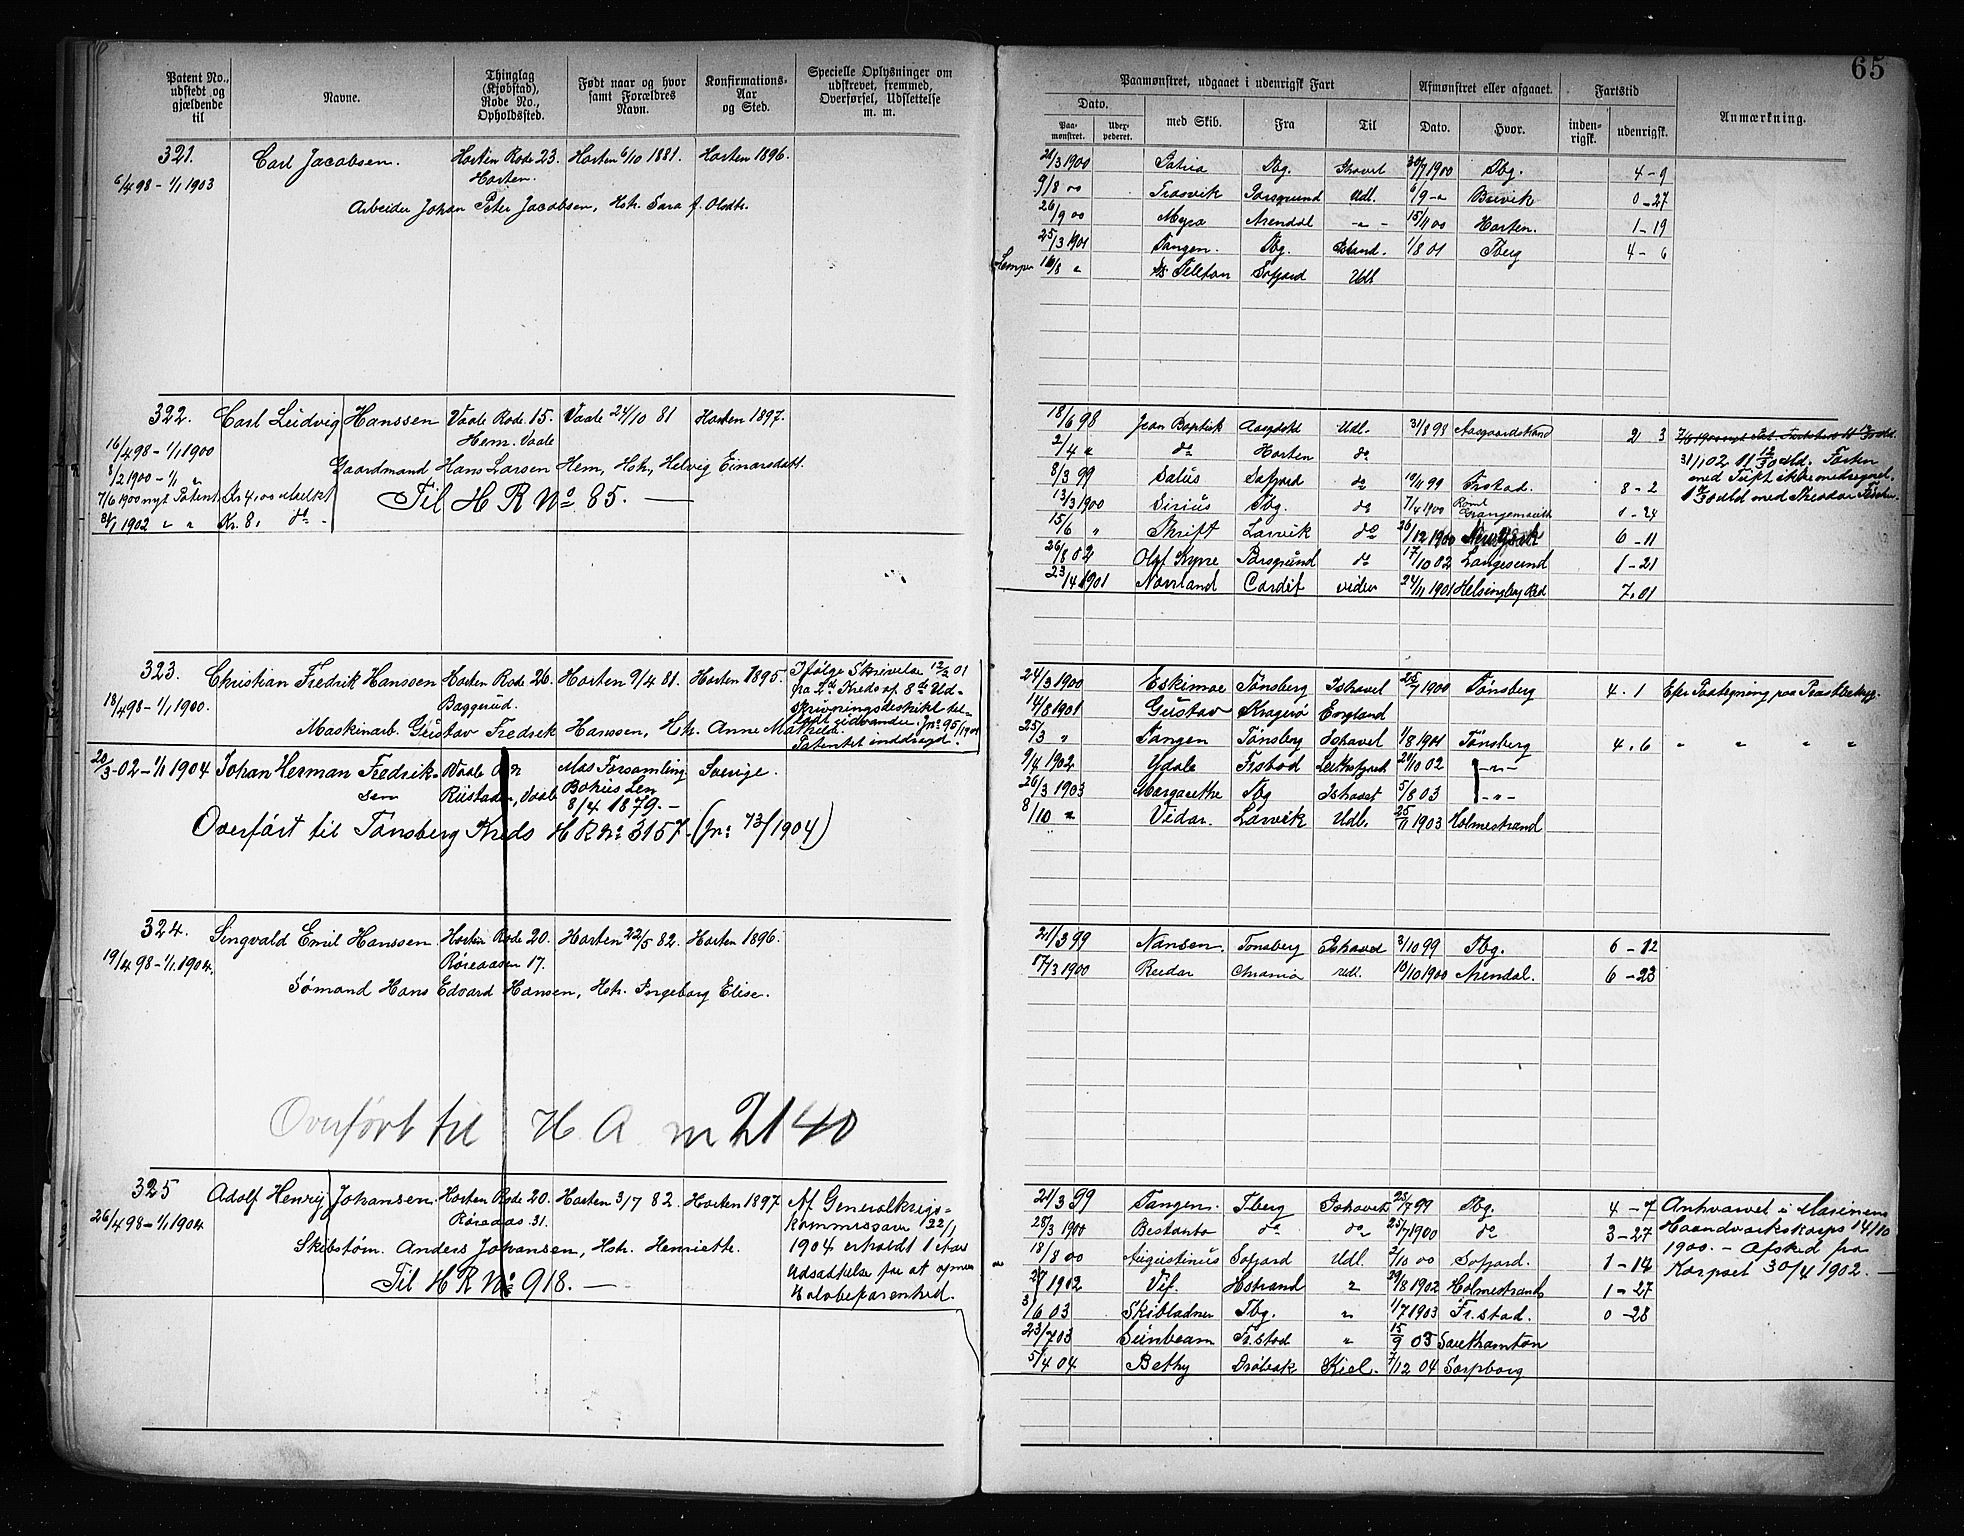 65
Patent No., udstedt og gjældende til
Navne.
Thinglag (Kjøbstad), Rode No., Opholdssted.
Født naar og hvor samt Forældres Navn.
Konfirmations-Aar og Sted.
Specielle Oplysninger om udskrevet, fremmed, Overførsel, Udslettelse m. m.
321. Carl Jacobsen. Horten Rode 23. Horten 6/10 1881. Horten 1896.
6/4 98 - 1/1 1903 Horten.
Arbeider Johan Peter Jacobsen, Hstr. Sara f. Olsdtr.
322. Carl Ludvig Hanssen Vaale Rode 15. Vaale 24/10 81 Horten 1897.
16/4 98 - 1/1 1900 Hem. Vaale
8/2 1900 - 1/1 "
Gaardmand Hans Larsen Hem, Hstr. Helvig Einarsdatt.
7/6 1900 nyt Patent Kr 4,00 udbetalt
Til H R No 85. —
31/1 1902 " " Kr. 8, do -
323. Christian Fredrik Hanssen Horten Rode 26. Horten 9/4 81. Horten 1895.
18/4 98 - 1/1 1900. Baggerud.
Ifølge Skrivelse 12/2 01
fra 2den Kreds af 8de Ud-
skrivningsdistrikt til-
ladt udvandre. Jnr 95/1901
Patentet inddragd.
Maskinarb. Gustav Fredrik Hanssen, Hstr. Anne Mathilde.
20/3-02 - 1/1 1904 Johan Herman Fredrik- Vaale Mos Forsamling Sverige.
sen Riistaden, Vaale Bohus Len
8/4 1879. -
Overført til Tønsberg Kreds H R No 3157 (jnr 73/1904)
324. Singvald Emil Hanssen Horten Rode 20. Horten 22/5 82. Horten 1896.
19/4 98 - 1/1 1904. Røreaasen 17.
Sømand Hans Edvard Hansen, Hstr. Ingeborg Elise.
Overført til H. A. nr 2140
325 Adolf Henry Johansen Horten Rode 20. Horten 3/7 82. Horten 1897.
26/4 98 - 1/1 1904. Røreaas 31.
Af Generalkrigs-
kommissær 22/1
1904 erholdt 1 Aars
Udsættelse for at opnaa
Skibstøm. Anders Johansen, Hstr. Henriette.
Til H R No 918. —
Paamønstret, udgaaet i udenrigsk Fart
Afmønstret eller afgaaet.
Fartstid
Anmærkning.
Dato.
Paa-mønstret.
Udex-pederet.
med Skib.
Fra
Til
Dato.
Hvor.
inden-rigsk.
udenrigsk.
21/3 1900 Patria Tbg. Ishavet 30/7 1900 Tbg. 4 - 9
9/8 00 Trosvik Porsgrund Udl. 6/9 - " Brevik 0 - 27
26/9 00 Myra Arendal - " - 15/11 00 Horten. 1 - 19
25/3 1901 Tangen. Tbg. Ishavd. 1/8 01 Tberg 4 - 6
16/8 " Ss Telefon Sofjord Udl.
18/6 98 Jean Baptist Udl. 31/8 98 Aasgaardstrand 2 3
2/4 " do Horten do
8/3 99 Salus Sofjord do 10/11 99 Frstad. 8 - 2
13/3 1900 Sirius Tbg. do 7/4 1900 0 - 24
15/6 " Thrift Larvik do 26/12 1900 6 - 11
26/8 02 Olaf Kyrre Porsgrund do 17/10 02 Langesund 1 - 21
23/4 1901 Norrland Cardif videre 24/11 1901 Helsingborg Red 7. 01
31/1 02
24/3 1900 Eskimoe Tønsberg Ishavet 25/7 1900 Tønsberg 4. 1
14/8 1901 Gustav Kragerø England
25/3 " Tangen Tønsberg Ishavet 1/8 1901 Tønsberg 4. 6 " " " "
9/4 1902 Ydale Frstad 29/10 02 - " -
26/3 1903 Margarethe Tbg Ishavet 5/8 03 - " -
8/10 " Vidar. Larvik Udl. 25/11 1903 Holmestrand
21/3 99 Nansen Tønsberg Ishavet 3/10 99 Tbg. 6 - 12
17/3 1900 Reidar Chrania Udl. 10/10 1900 Arendal. 6 - 23
21/3 99 Tangen. Tberg Ishavet 28/7 99 Tbg. 4 - 7 Anhvarvet i Marinens
28/3 1900 Bestanta do do 25/7 1900 do 3 - 27 Haandværkskorps 14/10
18/8 00 Augustinus Sofjord Udl. 2/10 00 Sofjord. 1 - 14 1900. - Afsked fra
2/7 1902 Vif. Hstrand " 29/8 1902 Holmestrand 1 - 27 Korpset 30/4 1902.
3/6 03 Skibladner Tbg. " 1/7 1903 Fr.stad. 0 - 28
23/7 03 Sunbeam Fr.stad " 15/9 03 Southamton
5/4 04 Bethy Drøbak Kiel. 7/12 04 Sarpborg